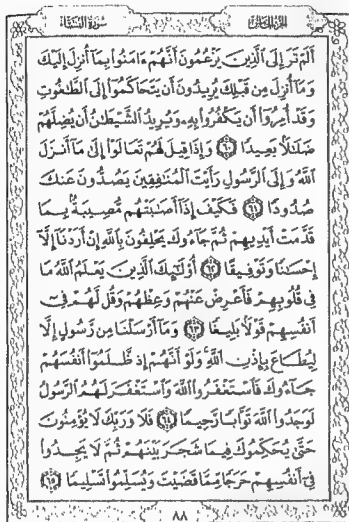 الجزء الخامس
سورة النساء
أَلَمْ تَرَ إِلَى ٱلَّذِينَ يَزْعُمُونَ أَنَّهُمْ ءَامَنُوا۟ بِمَآ أُنزِلَ إِلَيْكَ
وَمَآ أُنزِلَ مِن قَبْلِكَ يُرِيدُونَ أَن يَتَحَاكَمُوٓا۟ إِلَى ٱلطَّـٰغُوتِ
وَقَدْ أُمِرُوٓا۟ أَن يَكْفُرُوا۟ بِهِۦ وَيُرِيدُ ٱلشَّيْطَـٰنُ أَن يُضِلَّهُمْ
ضَلَـٰلًۢا بَعِيدًا ٦٠ وَإِذَا قِيلَ لَهُمْ تَعَالَوْا۟ إِلَىٰ مَآ أَنزَلَ
ٱللَّهُ وَإِلَى ٱلرَّسُولِ رَأَيْتَ ٱلْمُنَـٰفِقِينَ يَصُدُّونَ عَنكَ
صُدُودًا ٦١ فَكَيْفَ إِذَآ أَصَـٰبَتْهُم مُّصِيبَةٌۢ بِمَا
قَدَّمَتْ أَيْدِيهِمْ ثُمَّ جَآءُوكَ يَحْلِفُونَ بِٱللَّهِ إِنْ أَرَدْنَآ إِلَّآ
إِحْسَـٰنًا وَتَوْفِيقًا ٦٢ أُو۟لَـٰٓئِكَ ٱلَّذِينَ يَعْلَمُ ٱللَّهُ مَا
فِى قُلُوبِهِمْ فَأَعْرِضْ عَنْهُمْ وَعِظْهُمْ وَقُل لَّهُمْ فِىٓ
أَنفُسِهِمْ قَوْلًۢا بَلِيغًا ٦٣ وَمَآ أَرْسَلْنَا مِن رَّسُولٍ إِلَّا
لِيُطَاعَ بِإِذْنِ ٱللَّهِ وَلَوْ أَنَّهُمْ إِذ ظَّلَمُوٓا۟ أَنفُسَهُمْ
جَآءُوكَ فَٱسْتَغْفَرُوا۟ ٱللَّهَ وَٱسْتَغْفَرَ لَهُمُ ٱلرَّسُولُ
لَوَجَدُوا۟ ٱللَّهَ تَوَّابًا رَّحِيمًا ٦٤ فَلَا وَرَبِّكَ لَا يُؤْمِنُونَ
حَتَّىٰ يُحَكِّمُوكَ فِيمَا شَجَرَ بَيْنَهُمْ ثُمَّ لَا يَجِدُوا۟
فِىٓ أَنفُسِهِمْ حَرَجًا مِّمَّا قَضَيْتَ وَيُسَلِّمُوا۟ تَسْلِيمًا ٦٥
٨٨